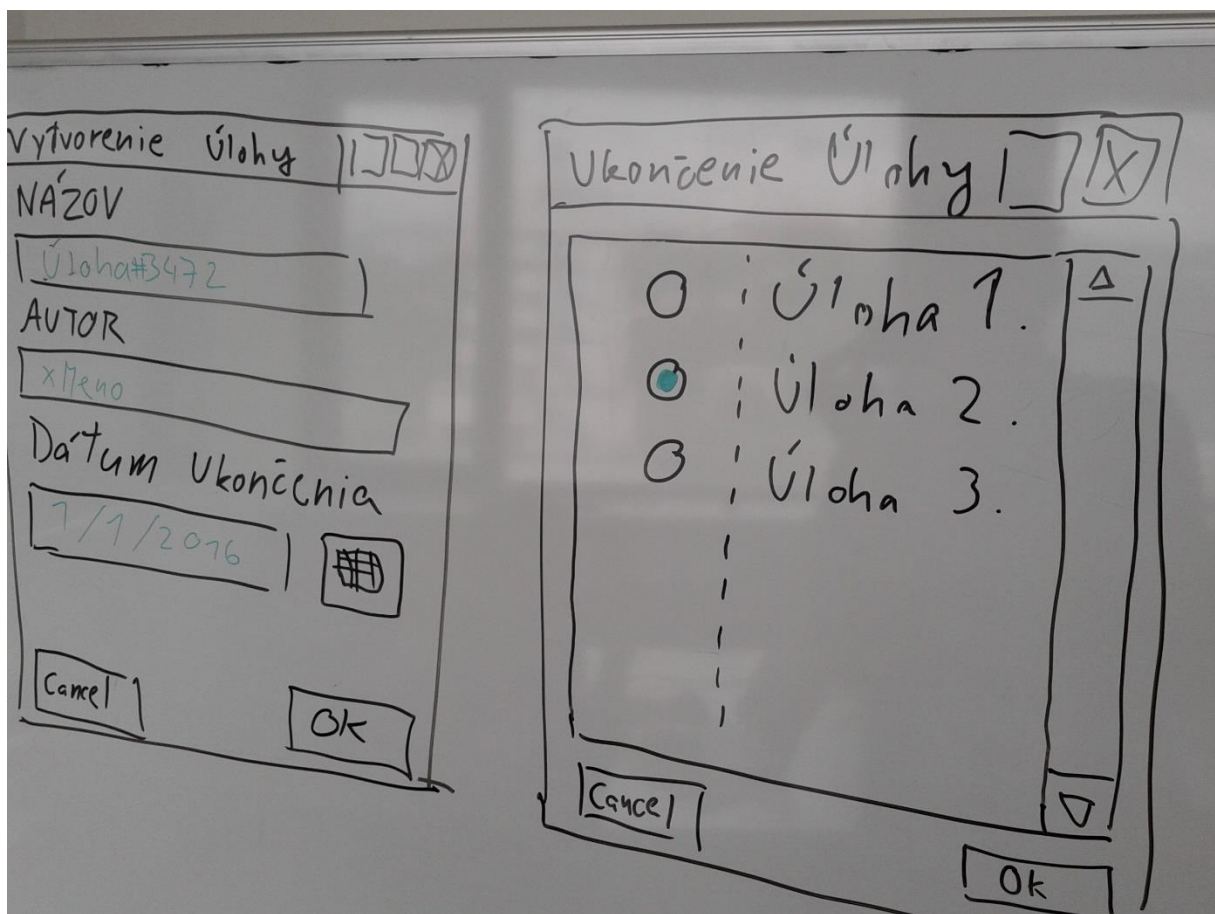 Vytvorenie Úlohy
X
NÁZOV
Úloha#3472
AUTOR
xMeno
Dátum Ukončenia
1/1/2016
Cancel
OK
Ukončenie Úlohy
X
Úloha 1.
Úloha 2.
Úloha 3.
Cancel
Ok